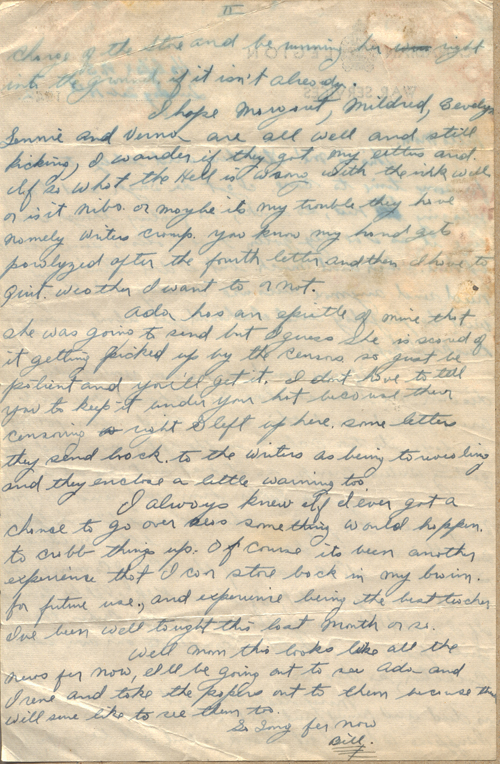 II
charge of the store and be running her right
into the ground if it isn't already.
I hope Margaret, Mildred, Beverly
Lennie and Verna are all well and still
kicking, I wander if they got my letters and
if so what the Hell is wrong with the ink well
or is it nibs. or maybe its my truble they have
namely writers cramp. you know my hand gets
paralyzed after the fourth letter and then I have to
quit. weather I want to or not.
Ada has an epistle of mine that
she was going to send but I guess she is scared of
it getting picked up by the censors so just be
patient and you'll get it. I don't have to tell
you to keep it under your hat because their
censoring right & left up here. some letters
they send back. to the writers as being to revealing
and they enclose a little warning too.
I always knew if I ever got a
chance to go over seas something would happen.
to crabb things up. Of course its been another
experience that I can store back in my brain.
for future use, and experience being the best teacher
I've been well taught this last month or so.
Well mom this looks like all the
news fer now, I'll be going out to see Ada and
Irene and take the papers out to them because they
will sure like to see them to.
So Long fer now
Bill.